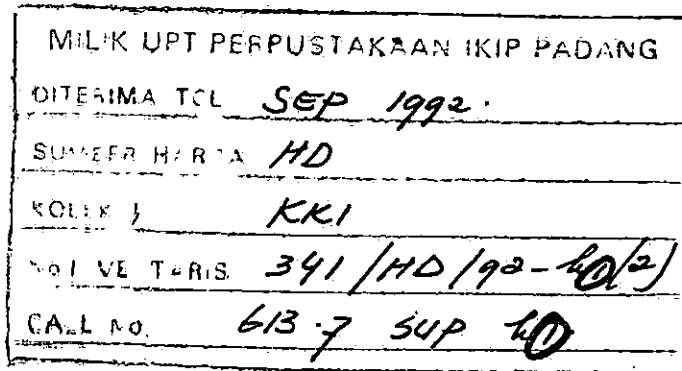 MILIK UPT PERPUSTAKAAN IKIP PADANG
DITERIMA TGL SEP 1992.
SUMBER HARTA HD
KOLEKSI KKI
NO INVENTARIS 341/HD/92-h①(2)
CALL NO. 613.7 SUP h①